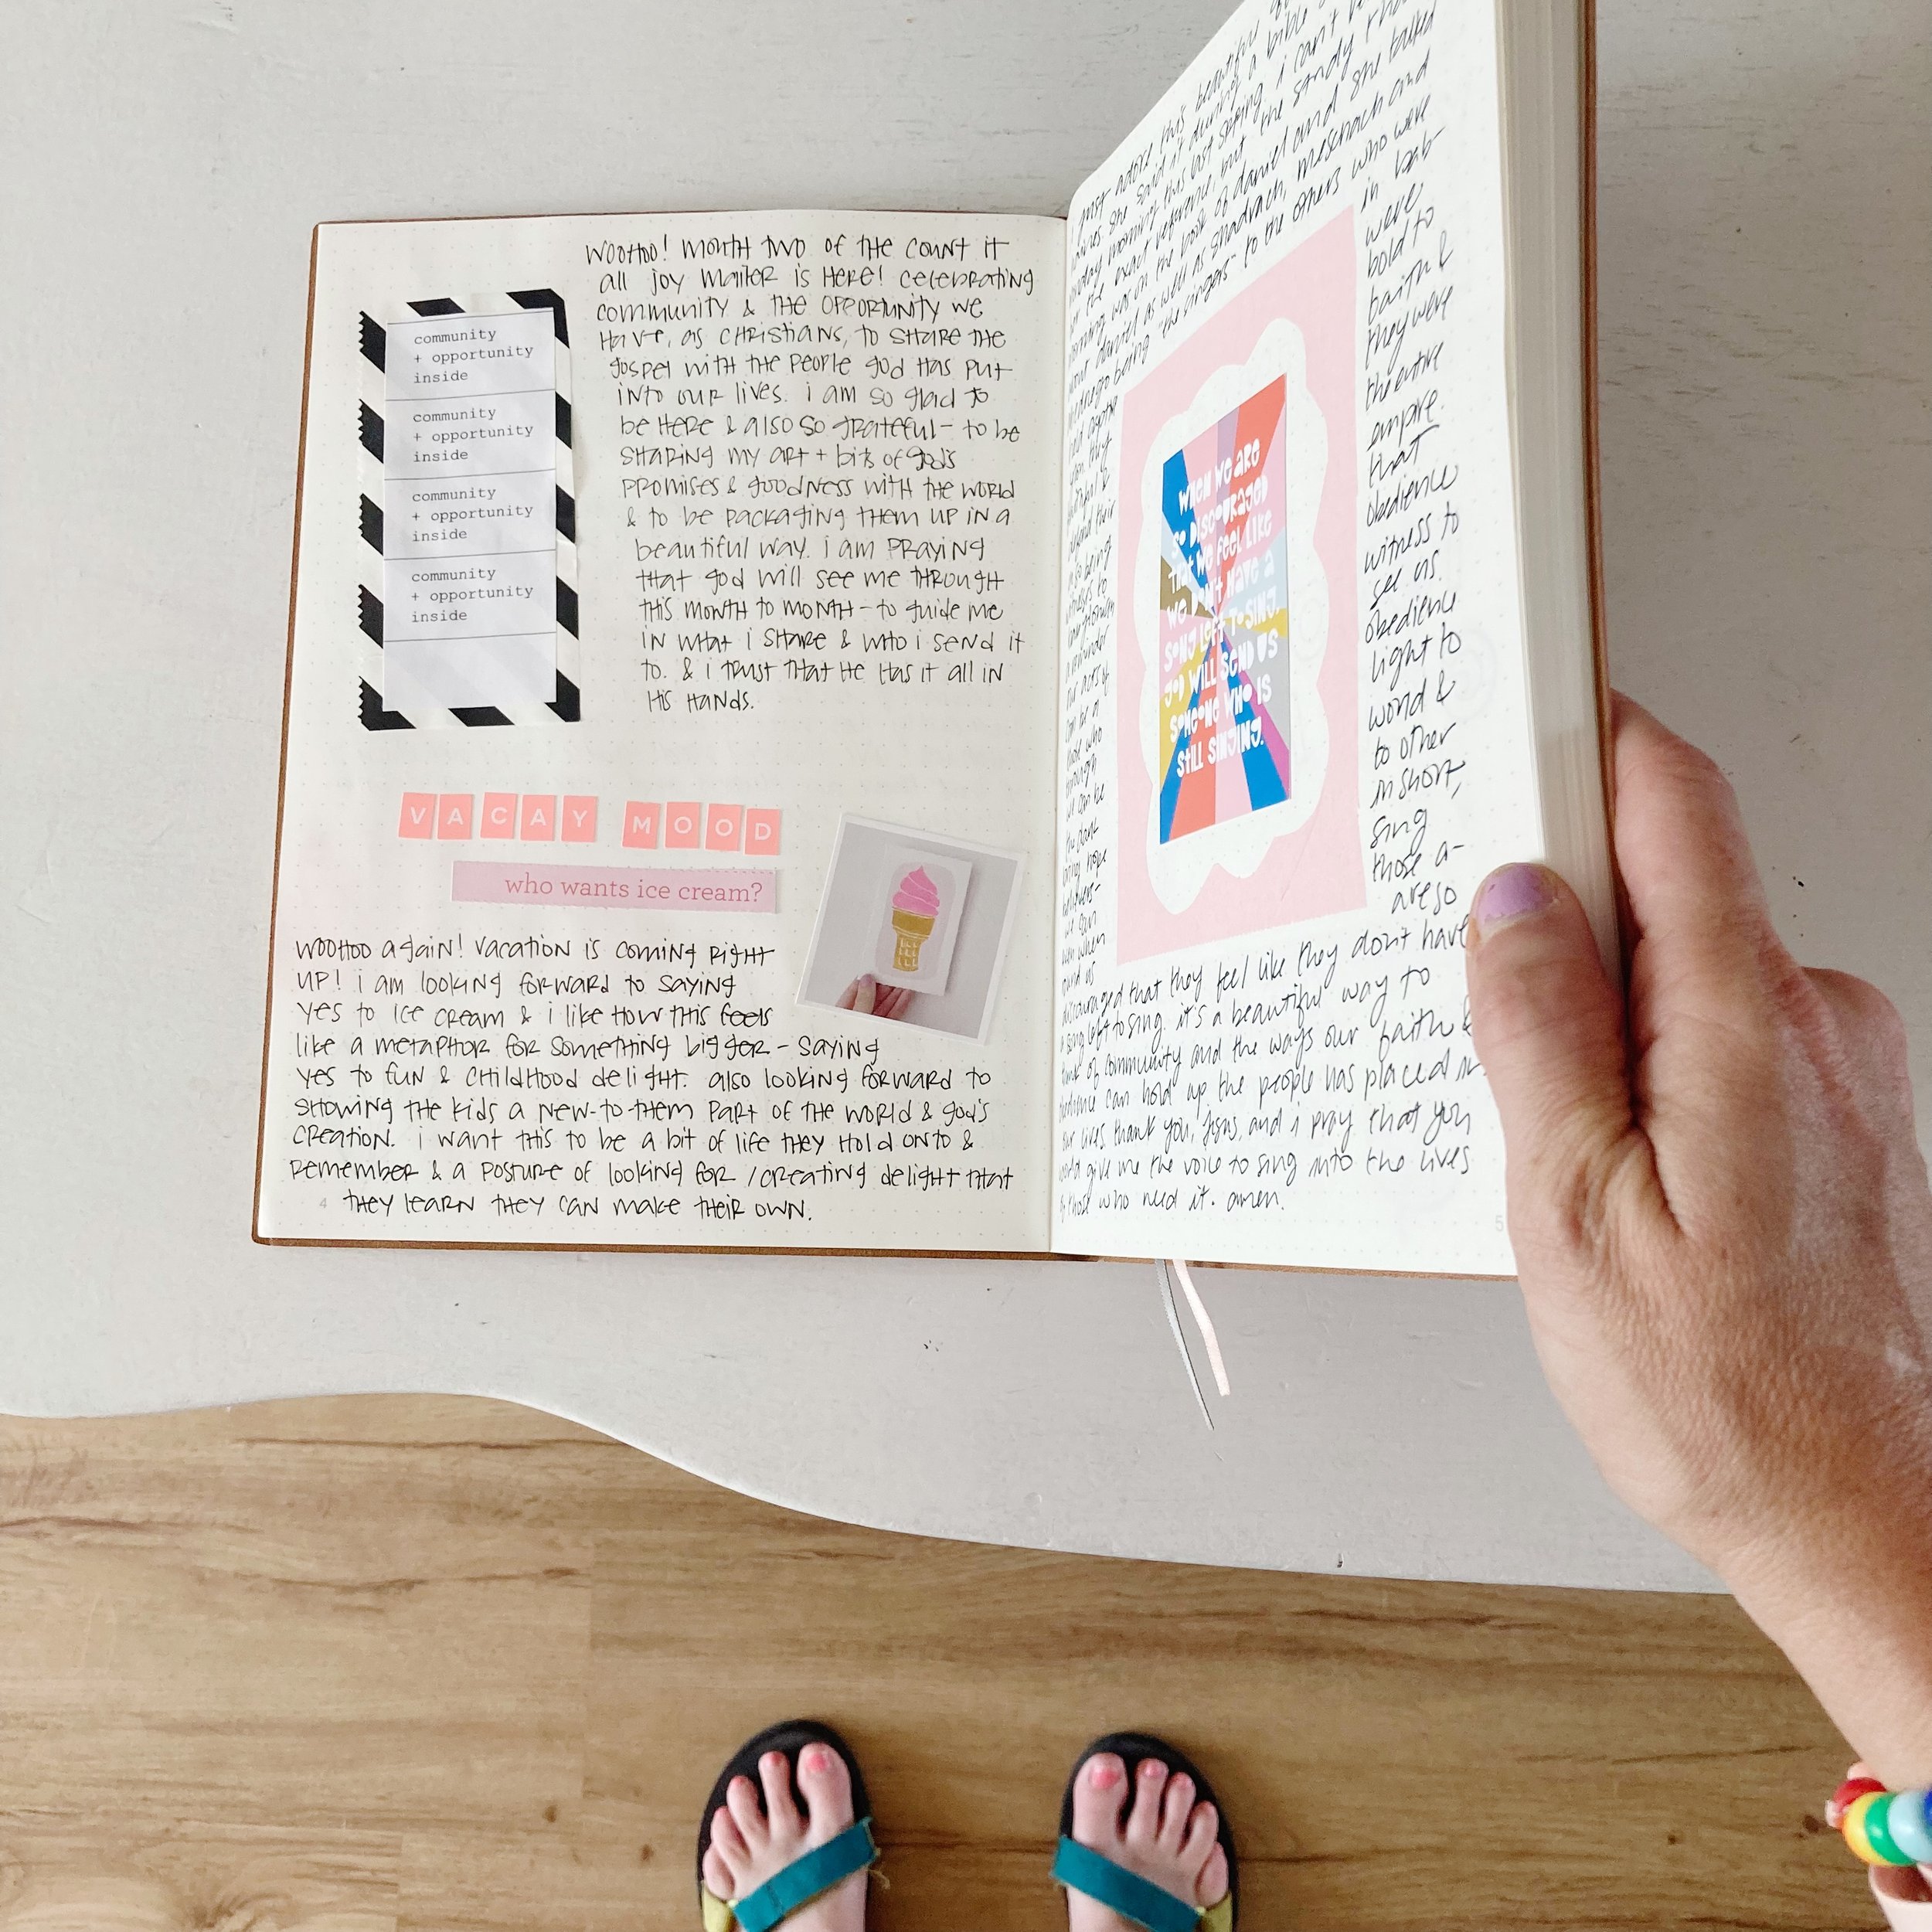 WOOHOO! MONTH TWO OF THE COUNT IT
ALL JOY MAILER IS HERE! CELEBRATING
COMMUNITY & THE OPPORTUNITY WE
HAVE, AS CHRISTIANS, TO SHARE THE
GOSPEL WITH THE PEOPLE GOD HAS PUT
INTO OUR LIVES. I AM SO GLAD TO
BE HERE & ALSO SO GRATEFUL - TO BE
SHARING MY ART + BITS OF GOD'S
PROMISES & GOODNESS WITH THE WORLD
& TO BE PACKAGING THEM UP IN A
BEAUTIFUL WAY. I AM PRAYING
THAT GOD WILL SEE ME THROUGH
THIS MONTH TO MONTH - TO GUIDE ME
IN WHAT I SHARE & WHO I SEND IT
TO. & I TRUST THAT HE HAS IT ALL IN
HIS HANDS.
community
+ opportunity
inside
community
+ opportunity
inside
community
+ opportunity
inside
community
+ opportunity
inside
VACAY MOOD
who wants ice cream?
WOOHOO AGAIN! VACATION IS COMING RIGHT
UP! I AM LOOKING FORWARD TO SAYING
YES TO ICE CREAM & I LIKE HOW THIS FEELS
LIKE A METAPHOR FOR SOMETHING BIGGER - SAYING
YES TO FUN & CHILDHOOD DELIGHT. ALSO LOOKING FORWARD TO
SHOWING THE KIDS A NEW-TO-THEM PART OF THE WORLD & GOD'S
CREATION. I WANT THIS TO BE A BIT OF LIFE THEY HOLD ONTO &
REMEMBER & A POSTURE OF LOOKING FOR / CREATING DELIGHT THAT
THEY LEARN THEY CAN MAKE THEIR OWN.
4
just adore this beautiful
she said it during a bible
sunday morning this last spring. i can't
the exact reference, but the sandy
was on the book of daniel and she talked
about daniel as well as shadrach, meshach and
abednego being "the singers" to the others who were
in bab-
were
bold to
faith &
they were
the entire
empire.
that
obedience
witness to
see us.
obedience
light to
world &
to other
in short,
sing
those a-
are so
WHEN WE ARE
SO DISCOURAGED
THAT WE FEEL LIKE
WE DON'T HAVE A
SONG LEFT TO SING,
GOD WILL SEND US
SOMEONE WHO IS
STILL SINGING.
discouraged that they feel like they don't have
a song left to sing. it's a beautiful way to
think of community and the ways our faith &
obedience can hold up the people has placed in
our lives. thank you, Jesus, and i pray that you
would give me the voice to sing into the lives
of those who need it. amen.
5